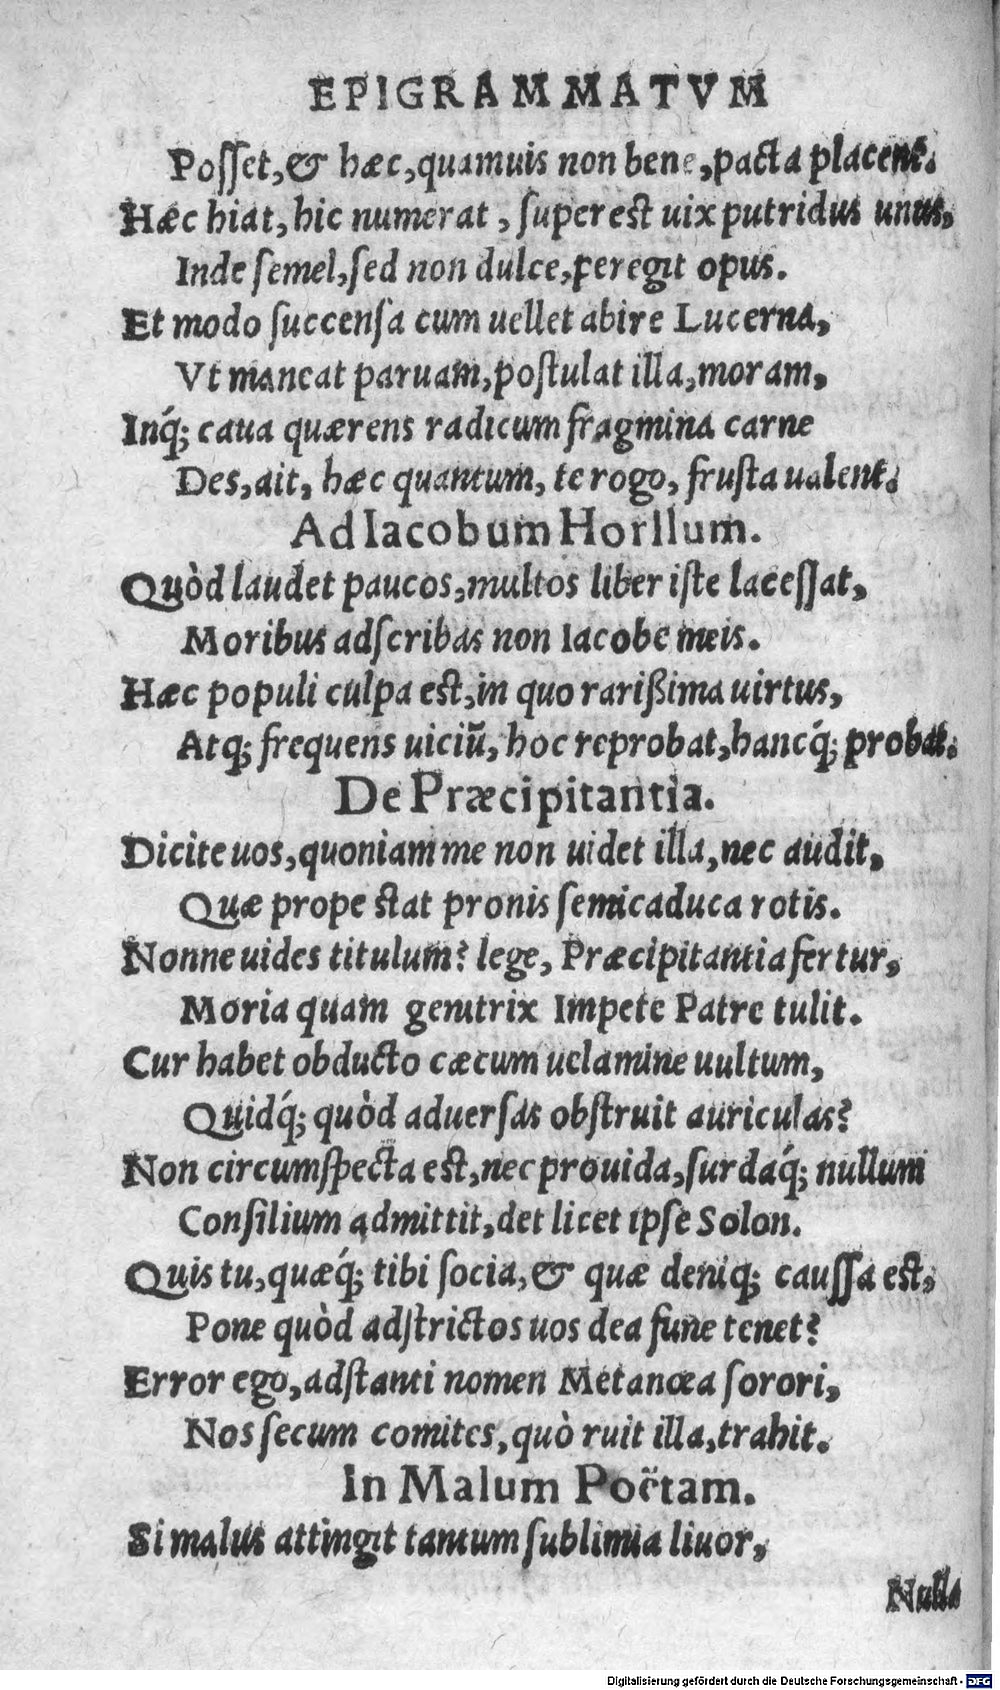 EPIGRAMMATVM
Posset, & hæc, quamuis non bene, pacta placent.
Hæc hiat, hic numerat, superest uix putridus unus,
Inde semel, sed non dulce, peregit opus.
Et modo succensa cum uellet abire Lucerna,
Vt maneat paruam, postulat illa, moram,
Inq́; caua quærens radicum fragmina carne
Des, ait, hæc quantum, te rogo, frusta ualent.
Ad Iacobum Horllum.
Quòd laudet paucos, multos liber iste lacessat,
Moribus adscribas non Iacobe meis.
Hæc populi culpa est, in quo rarißima uirtus,
Atq; frequens uiciũ, hoc reprobat, hancq́; probat.
De Præcipitantia.
Dicite uos, quoniam me non uidet illa, nec audit,
Quæ prope stat pronis semicaduca rotis.
Nonne uides titulum? lege, Præcipitantia fertur,
Moria quam genitrix Impete Patre tulit.
Cur habet obducto cæcum uelamine uultum,
Quidq́; quòd aduersas obstruit auriculas?
Non circumspecta est, nec prouida, surdaq́; nullum
Consilium admittit, det licet ipse Solon.
Quis tu, quæq́; tibi socia, & quæ deniq; caussa est,
Pone quòd adstrictos uos dea fune tenet?
Error ego, adstanti nomen Metanœa sorori,
Nos secum comites, quò ruit illa, trahit.
In Malum Poëtam.
Si malus attingit tantum sublimia liuor,
Nulla
Digitalisierung gefördert durch die Deutsche Forschungsgemeinschaft - DFG